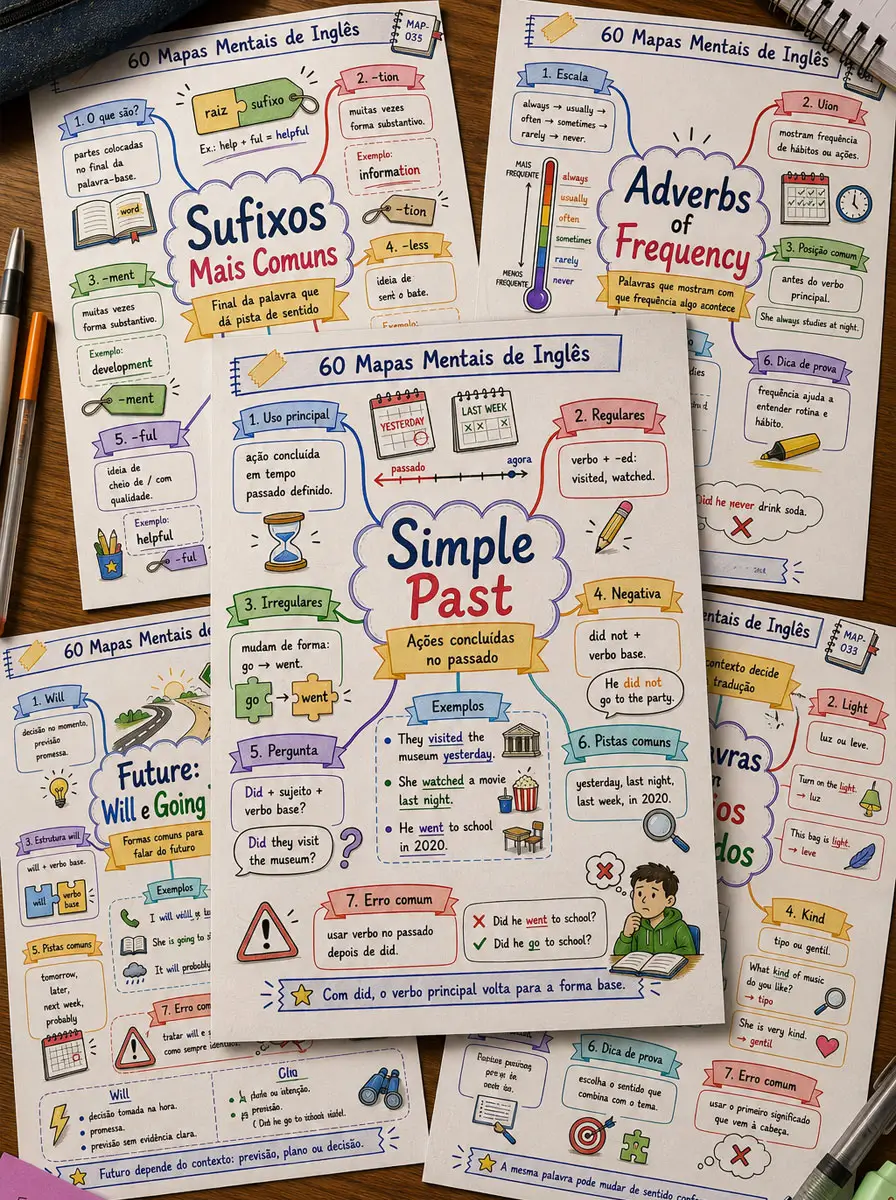 60 Mapas Mentais de Inglês
MAP-
035
1. O que são?
partes colocadas
no final da
palavra-base.
word
raiz
sufixo
Ex.: help + ful = helpful
2. -tion
muitas vezes
forma substantivo.
Exemplo:
information
-tion
Sufixos
Mais Comuns
Final da palavra que
dá pista de sentido
3. -ment
muitas vezes
forma substantivo.
Exemplo:
development
-ment
4. -less
ideia de
sent o bate.
Exemplo:
5. -ful
ideia de
cheio de / com
qualidade.
Exemplo:
helpful
-ful
60 Mapas Mentais de Inglês
1. Escala
always → usually →
often → sometimes →
rarely → never.
MAIS
FREQUENTE
always
usually
often
sometimes
rarely
never
MENOS
FREQUENTE
2. Uion
mostram frequência
de hábitos ou ações.
Adverbs
of
Frequency
Palavras que mostram com
que frequência algo acontece
3. Posição comum
antes do verbo
principal.
She always studies at night.
6. Dica de prova
frequência ajuda a
entender rotina e
hábito.
he never drink soda.
60 Mapas Mentais de Inglês
1. Uso principal
ação concluída
em tempo
passado definido.
YESTERDAY
LAST WEEK
passado
agora
2. Regulares
verbo + -ed:
visited, watched.
Simple
Past
Ações concluídas
no passado
3. Irregulares
mudam de forma:
go → went.
go → went
4. Negativa
did not +
verbo base.
He did not
go to the party.
Exemplos
They visited the
museum yesterday.
She watched a movie
last night.
He went to school
in 2020.
5. Pergunta
Did + sujeito +
verbo base?
Did they visit
the museum?
?
6. Pistas comuns
yesterday, last night,
last week, in 2020.
7. Erro comum
usar verbo no passado
depois de did.
Did he went to school?
Did he go to school?
Com did, o verbo principal volta para a forma base.
60 Mapas Mentais d
1. Will
decisão no momento,
previsão
promessa.
Future:
Will e Going
Formas comuns para
falar do futuro
3. Estrutura will
will + verbo base.
will
verbo
base
Exemplos
I will
She is going to
It will probably
5. Pistas comuns
tomorrow,
later,
next week,
probably
7. Erro com
tratar will e
como sempre
Will
decisão tomada na hora.
promessa.
previsão sem evidência clara.
Clia
previsão.
( Did he go to
Futuro depende do contexto: previsão, plano ou decisão.
Mentais de Inglês
MAP-
033
contexto decide
tradução
2. Light
luz ou leve.
Turn on the light.
→ luz
This bag is light.
→ leve
avras
os
dos
4. Kind
tipo ou gentil.
What kind of music
do you like?
→ tipo
She is very kind.
→ gentil
6. Dica de prova
escolha o sentido que
combina com o tema.
7. Erro comum
usar o primeiro significado
que vem à cabeça.
A mesma palavra pode mudar de sentido